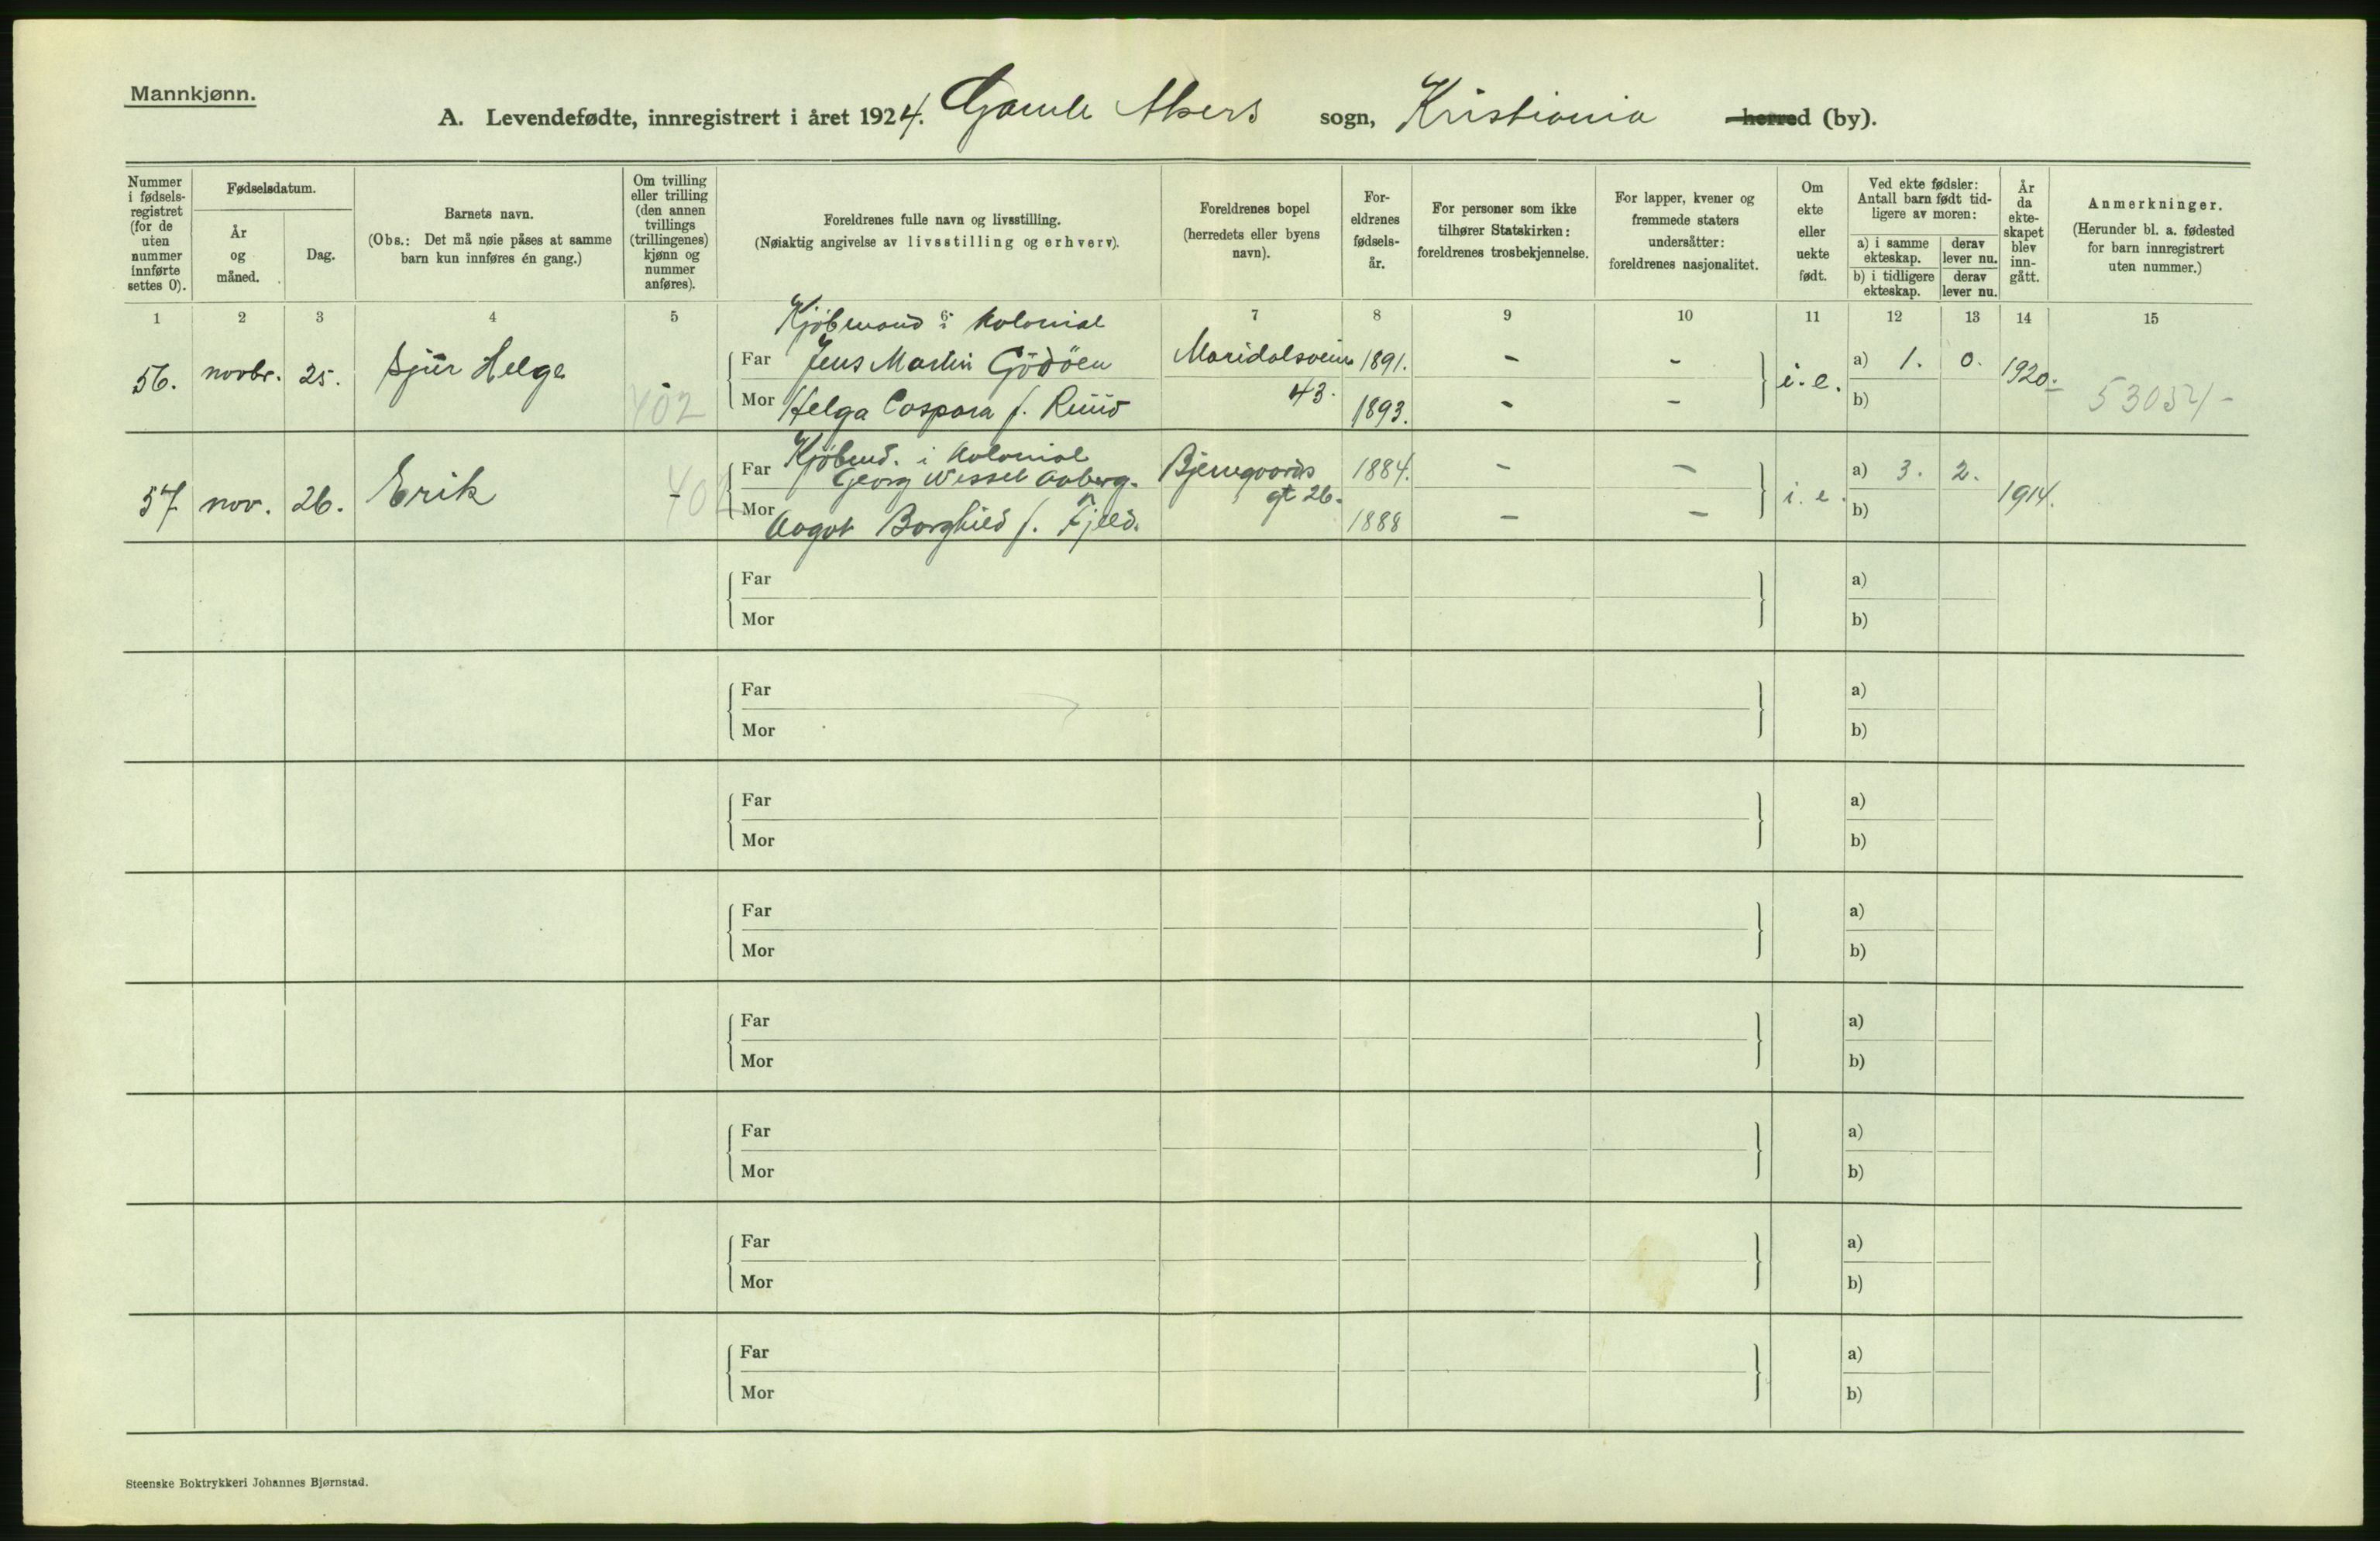 Mannkjønn.
A. Levendefødte, innregistrert i året 1924. Gamle Akers sogn, Kristiania herred (by).
Nummer i fødselsregistret (for de uten nummer innførte settes 0).
Fødselsdatum.
År og måned.
Dag.
Barnets navn.
(Obs.: Det må nøie påses at samme barn kun innføres én gang.)
Om tvilling eller trilling (den annen tvillings (trillingenes) kjønn og nummer anføres).
Foreldrenes fulle navn og livsstilling.
(Nøiaktig angivelse av livsstilling og erhverv).
Foreldrenes bopel (herredets eller byens navn).
Foreldrenes fødselsår.
For personer som ikke tilhører Statskirken: foreldrenes trosbekjennelse.
For lapper, kvener og fremmede staters undersåtter: foreldrenes nasjonalitet.
Om ekte eller uekte født.
Ved ekte fødsler: Antall barn født tidligere av moren:
a) i samme ekteskap. derav lever nu.
b) i tidligere ekteskap. derav lever nu.
År da ekteskapet blev inngått.
Anmerkninger.
(Herunder bl. a. fødested for barn innregistrert uten nummer.)
1 2 3 4 5 6 7 8 9 10 11 12 13 14 15
Kjöbmand i kolonial
56. novbr. 25. Sjur Helge - 402 Far Jens Martin Gödöen Maridalsveien 1891. - - i.e. a) 1. 0. 1920.
Mor Helga Caspara f. Ruud 43. 1893. - - b) 53054-
Kjöbmd. i kolonial
57 nov. 26. Erik - 402 Far Georg Wessel Aaberg. Bjerregaards 1884. - - i.e. a) 3. 2. 1914.
gt 26.
Mor Aagot Borghild f. Fjeld. 1888 - - b)
Far a)
Mor b)
Far a)
Mor b)
Far a)
Mor b)
Far a)
Mor b)
Far a)
Mor b)
Far a)
Mor b)
Far a)
Mor b)
Far a)
Mor b)
Steenske Boktrykkeri Johannes Bjørnstad.